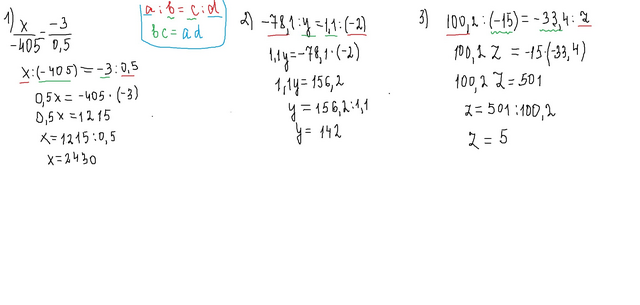 1) x/-405 = -3/0,5
x:(-405)=-3:0,5
0,5x=-405·(-3)
0,5x=1215
x=1215:0,5
x=2430
a:b=c:d
bc=ad
2) -78,1:y=1,1:(-2)
1,1y=-78,1·(-2)
1,1y=156,2
y=156,2:1,1
y=142
3) 100,2:(-15)=-33,4:z
100,2 z=-15·(-33,4)
100,2 z=501
z=501:100,2
z=5